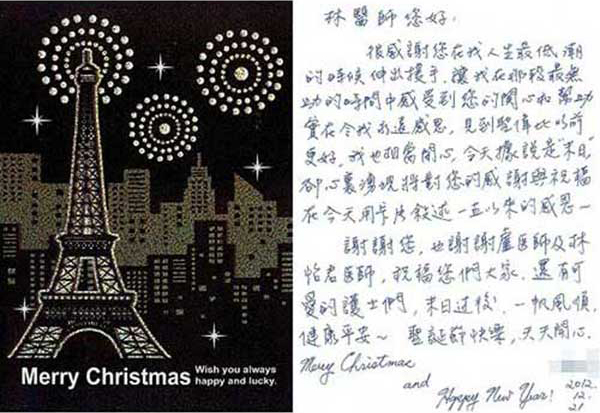 Merry Christmas
Wish you always
happy and lucky.
林醫師您好,
很感謝您在我人生最低潮
的時候伸出援手,讓我在那段最無
助的時間中感受到您的關心和幫助
實在令我永遠感恩,見到堅偉比以前
更好,我也相當開心,今天據說是"末日"
卻心裏湧現將對您的感謝與祝福
在今天用卡片敘述一直以來的感恩~
謝謝您,也謝謝盧医師及林
怡君医師,祝福您們大家,還有可
愛的護士們,末日過後,一帆風順,
健康平安~ 聖誕節快樂,天天開心.
Merry Christmas
and
Happy New Year!
2012.
12.
21